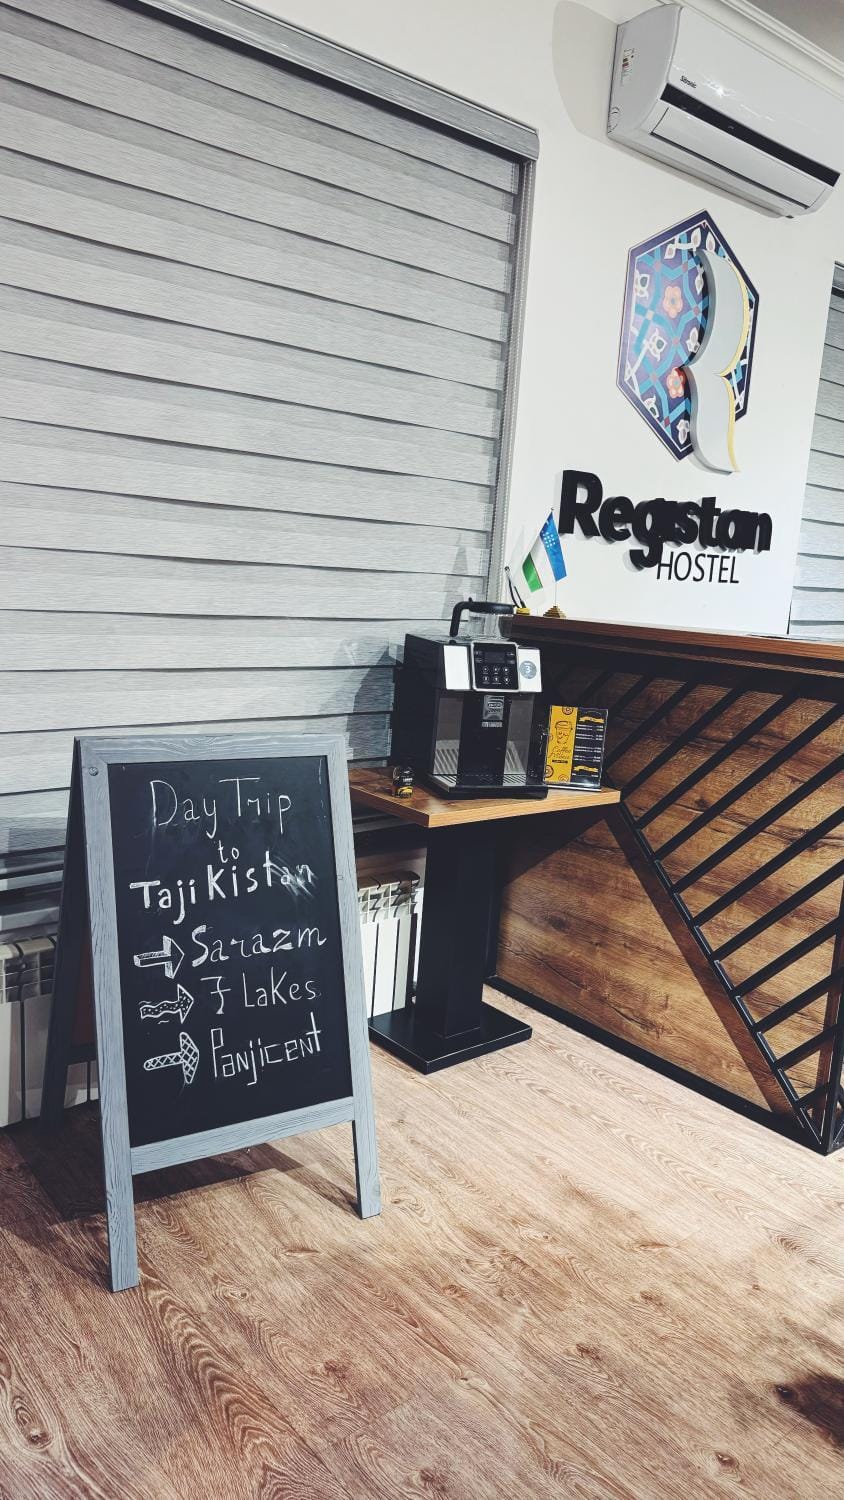 Day Trip
to
Tajikistan
Sarazm
7 Lakes
Panjicent
Registan
HOSTEL
Coffee
3